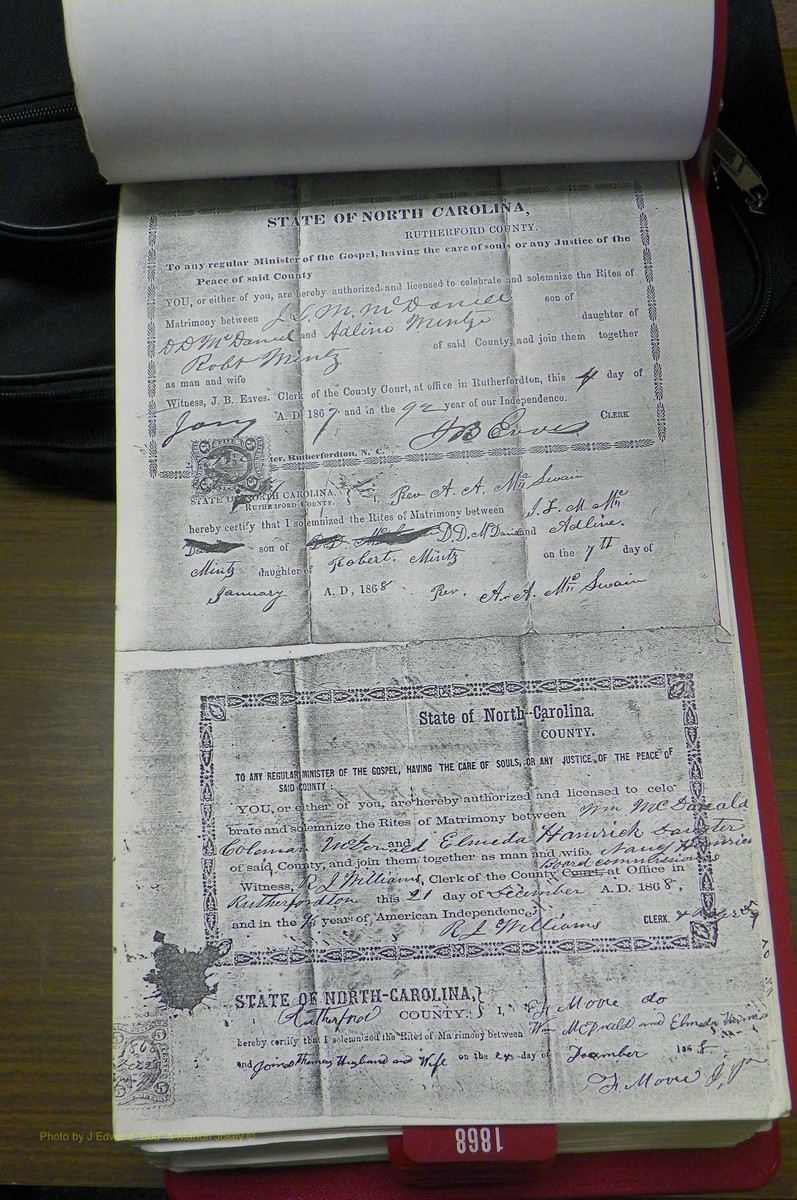 STATE OF NORTH CAROLINA,
RUTHERFORD COUNTY.
To any regular Minister of the Gospel, having the care of souls or any Justice of the
Peace of said County
YOU, or either of you, are hereby authorized and licensed to celebrate and solemnize the Rites of
Matrimony between J. L. M. McDaniel son of
D D McDaniel and Adline Mintz daughter of
Robt Mintz of said County, and join them together
as man and wife
Witness, J. B. Eaves. Clerk of the County Court, at office in Rutherfordton, this 4 day of
Jany A. D. 1867 and in the 92 year of our Independence.
J B Eaves CLERK
ter, Rutherfordton, N. C.
STATE OF NORTH CAROLINA.
RUTHERFORD COUNTY.
I, Rev A. A. McSwain
hereby certify that I solemnized the Rites of Matrimony between J. L. M. Mc
son of D. D. McDaniel and Adline.
Mintz daughter of Robert. Mintz on the 7th day of
January A. D, 1868 Rev. A. A. McSwain
State of North-Carolina.
COUNTY.
TO ANY REGULAR MINISTER OF THE GOSPEL, HAVING THE CARE OF SOULS, OR ANY JUSTICE OF THE PEACE OF
SAID COUNTY:
YOU, or either of you, are hereby authorized and licensed to cele
brate and solemnize the Rites of Matrimony between Wm McDanald
Coleman and Elmeda Hamrick Daughter
of said County, and join them together as man and wife. Nancy Hamrick
Board commissioners
Witness, R L Williams, Clerk of the County Court, at Office in
Rutherfordton this 21 day of December A. D. 1868,
and in the 93 year of American Independence.
R L Williams CLERK.
STATE OF NORTH-CAROLINA,}
Rutherford COUNTY. } I, F Moore do
hereby certify that I solemnized the Rites of Matrimony between Wm McDnald and Elmeda
and Joined them as Husband and Wife on the day of December 1868
F. Moore J. P
Photo by J Edward "Bud" & Marion Josey ©
1868